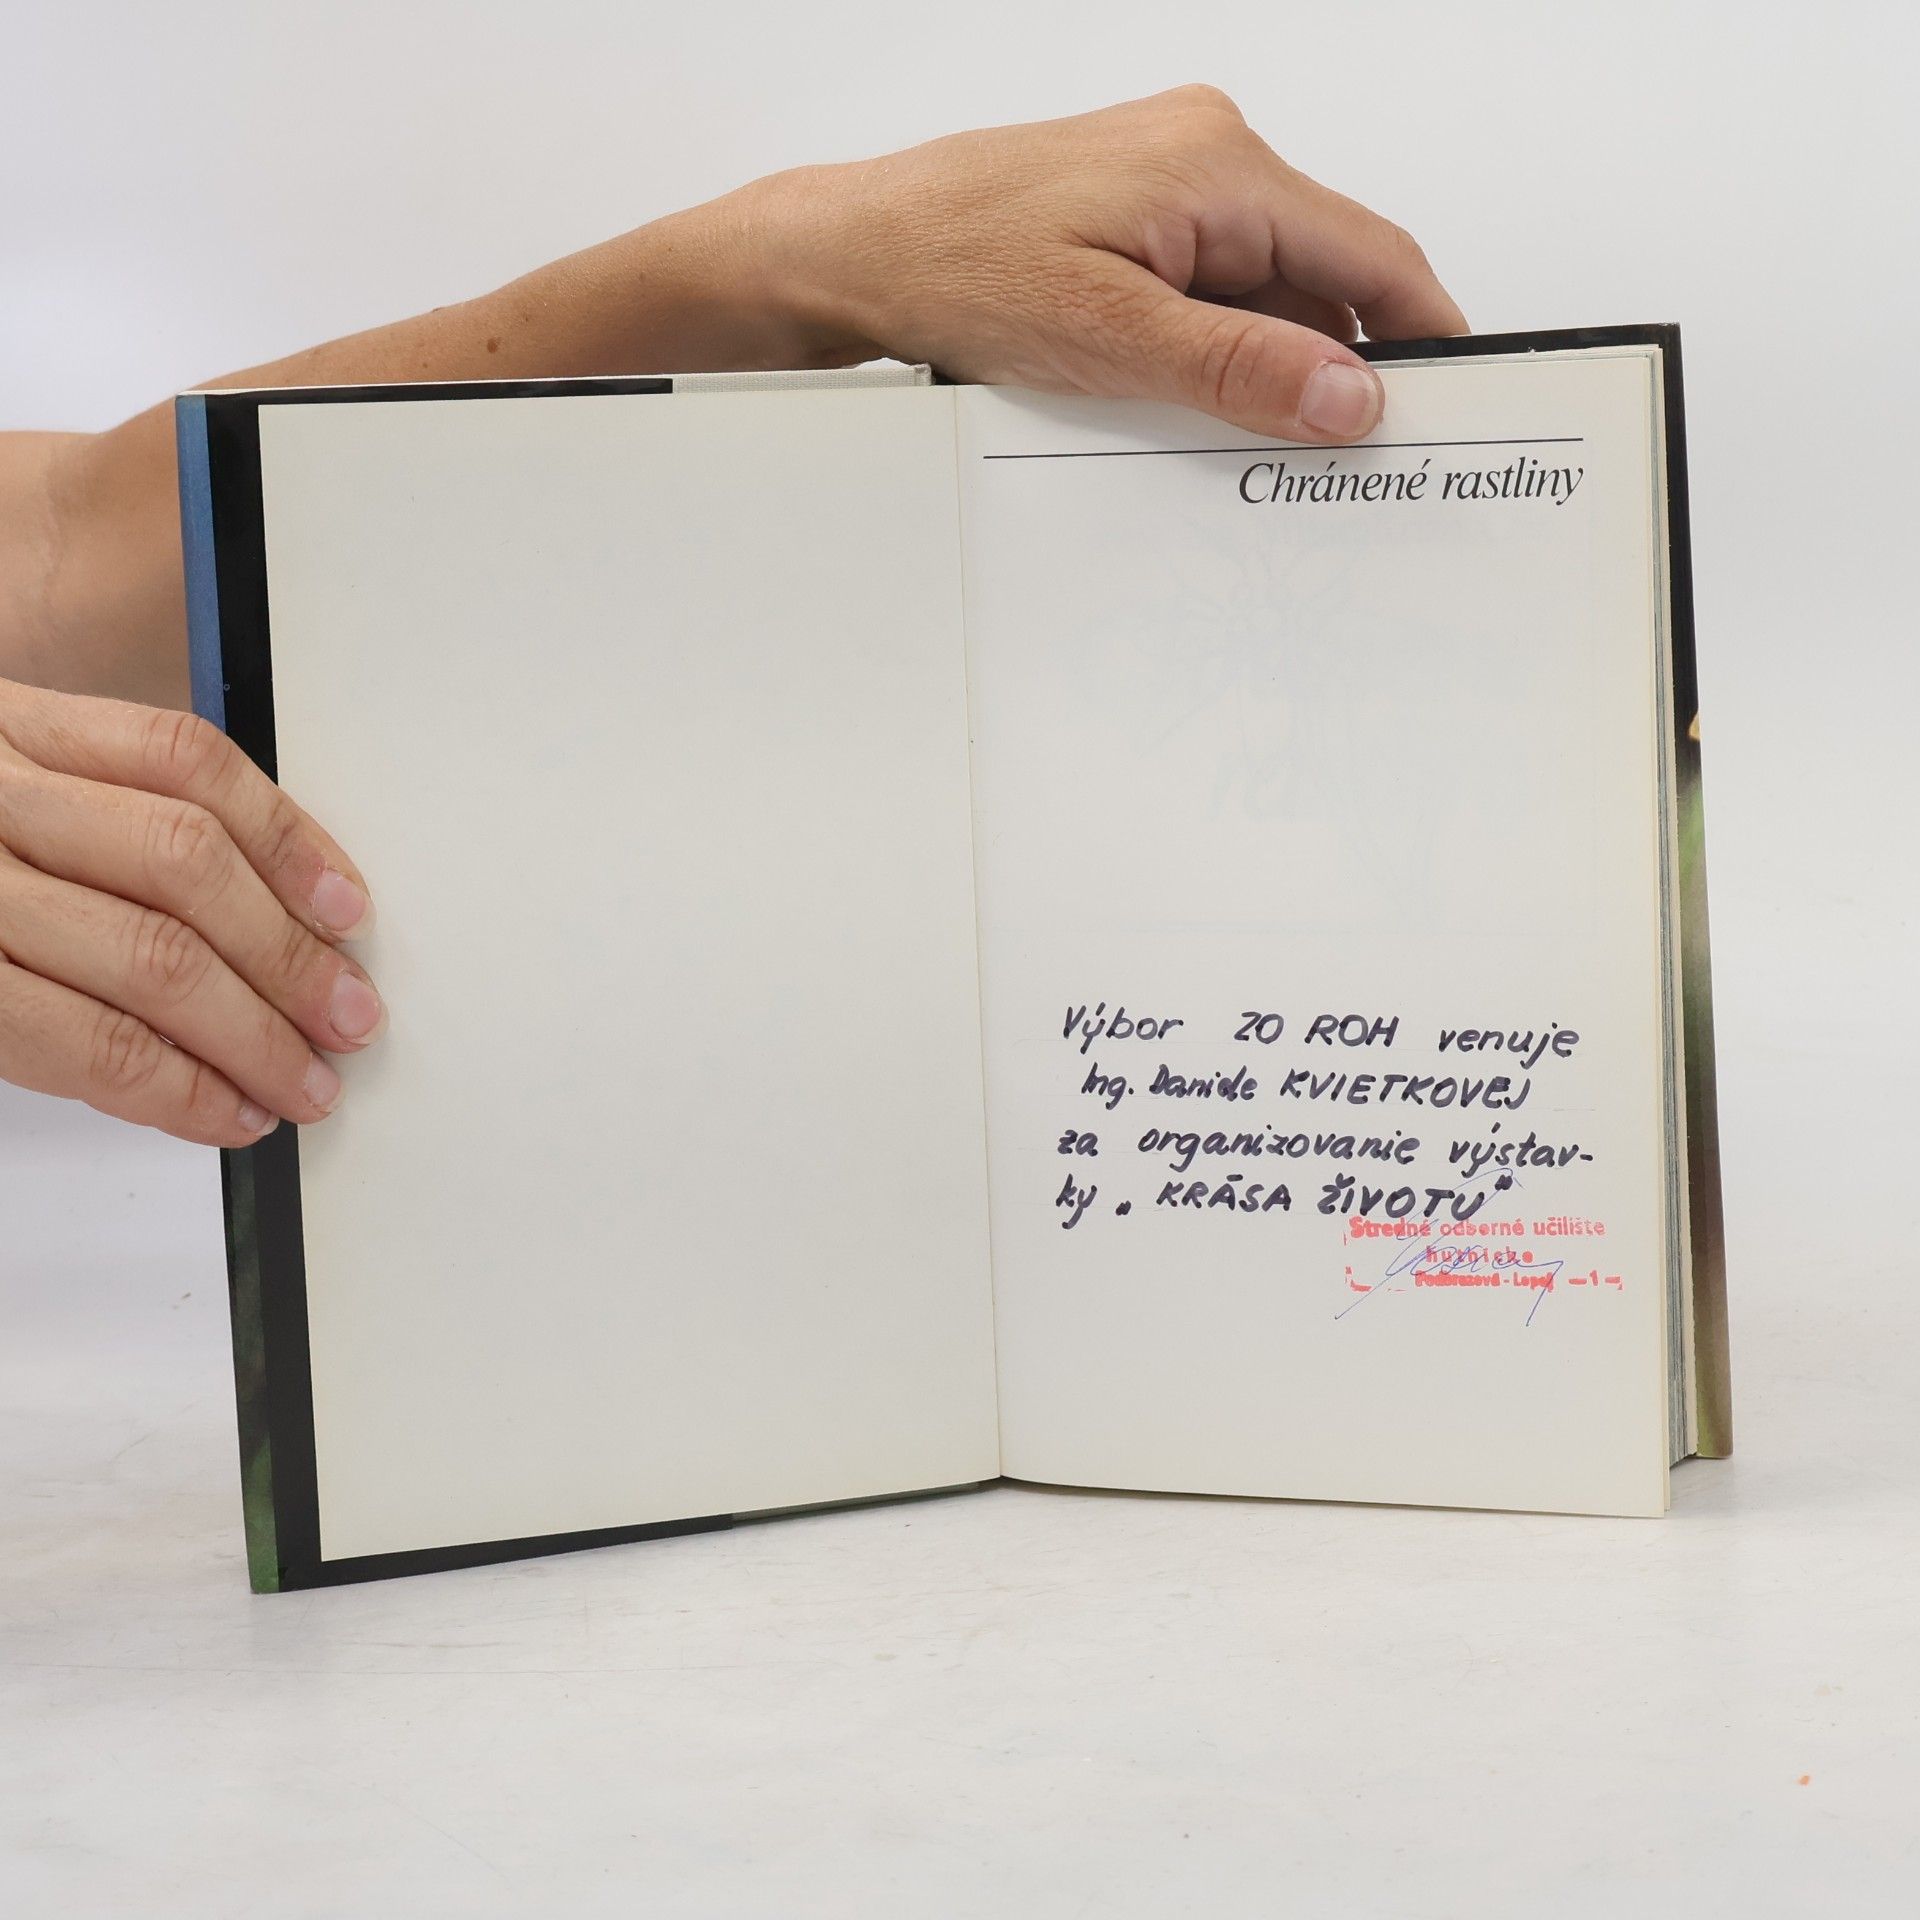 Chránené rastliny
Výbor ZO ROH venuje
Ing. Daniele KVIETKOVEJ
za organizovanie výstav-
ky „KRÁSA ŽIVOTU"
Stredné odborné učilište
hutnícke
Podbrezová - Lopej — 1 —